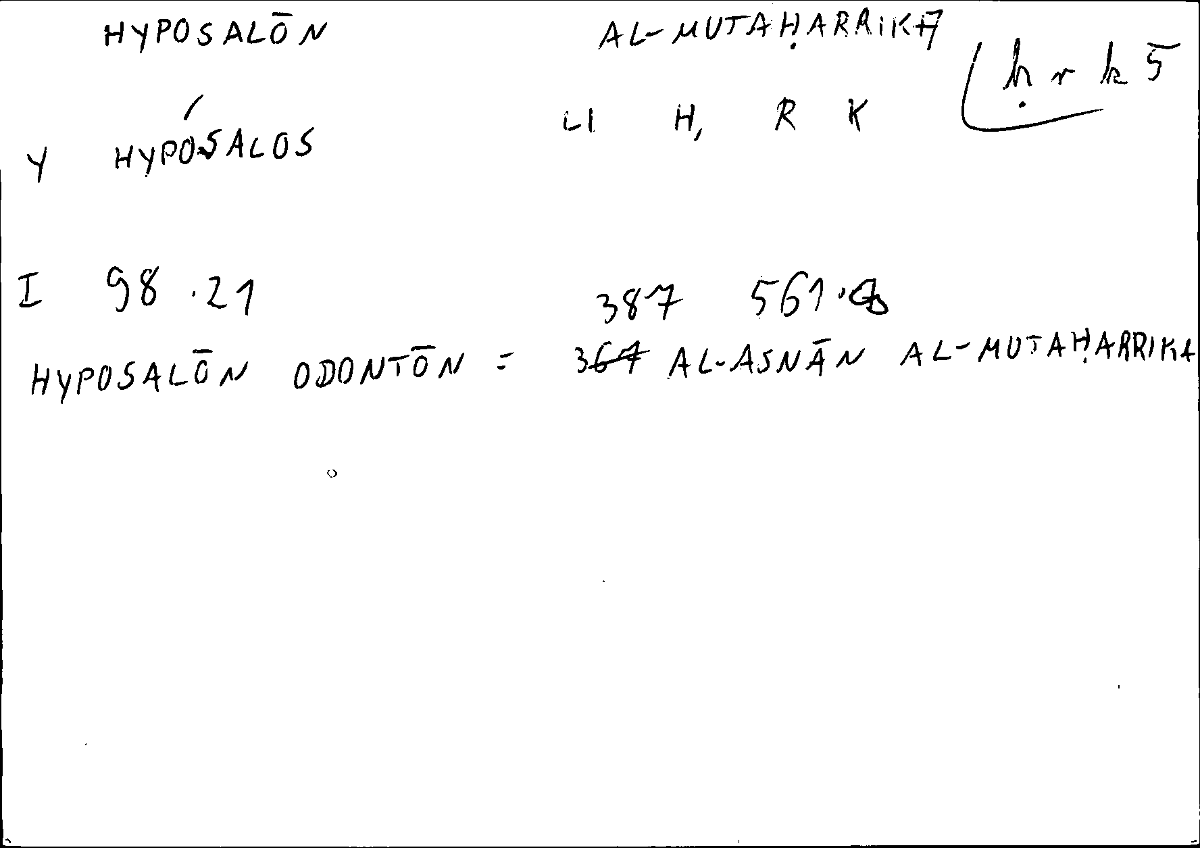 HYPOSALŌN AL-MUTAḤARRIKA
ḥrk5
LI Ḥ R K
Y HYPÓSALOS
I 98.21 387 561.
HYPOSALŌN ODONTŌN = 367 AL-ASNĀN AL-MUTAḤARRIKA